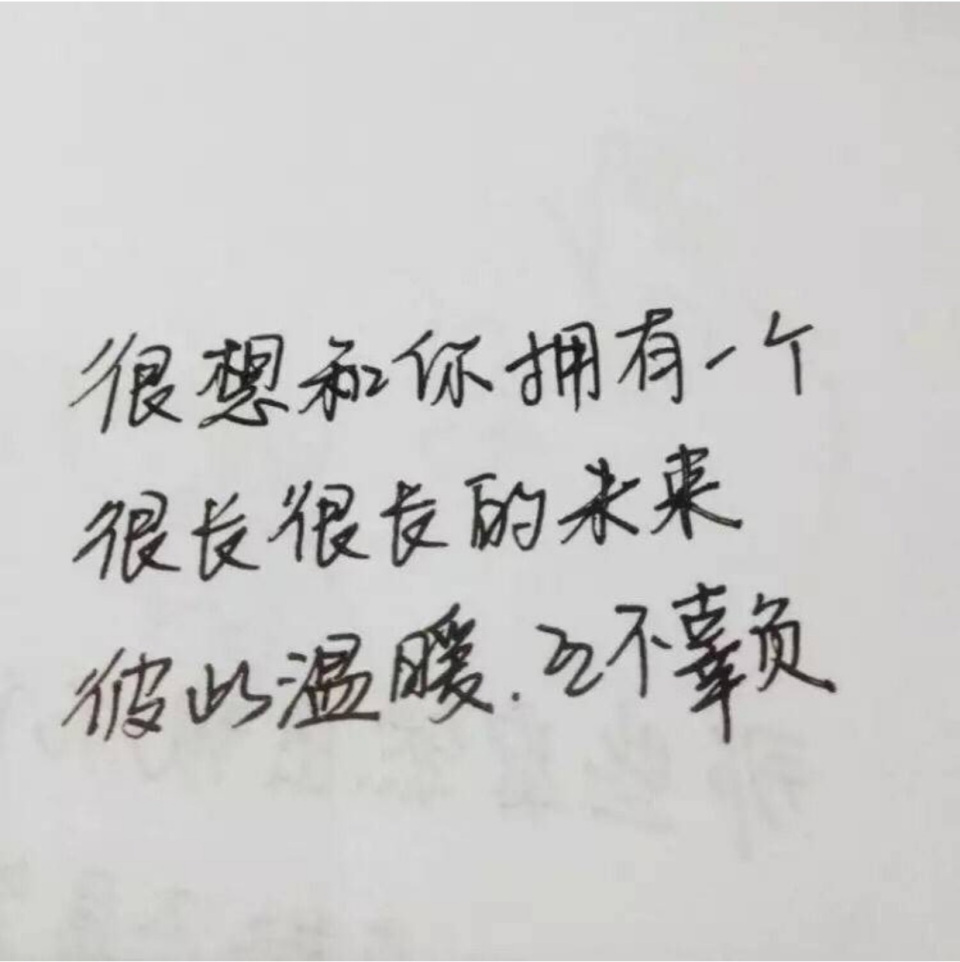 很想和你拥有一个
很长很长的未来
彼此温暖.互不辜负